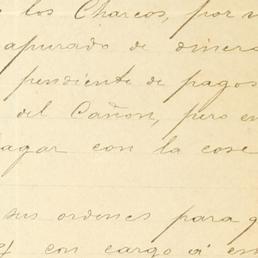 los Charcos, por
apurado de dinero
pendiente de pagos
del Cañon, pero en
pagar con la cose
sus ordenes para q
con cargo á es